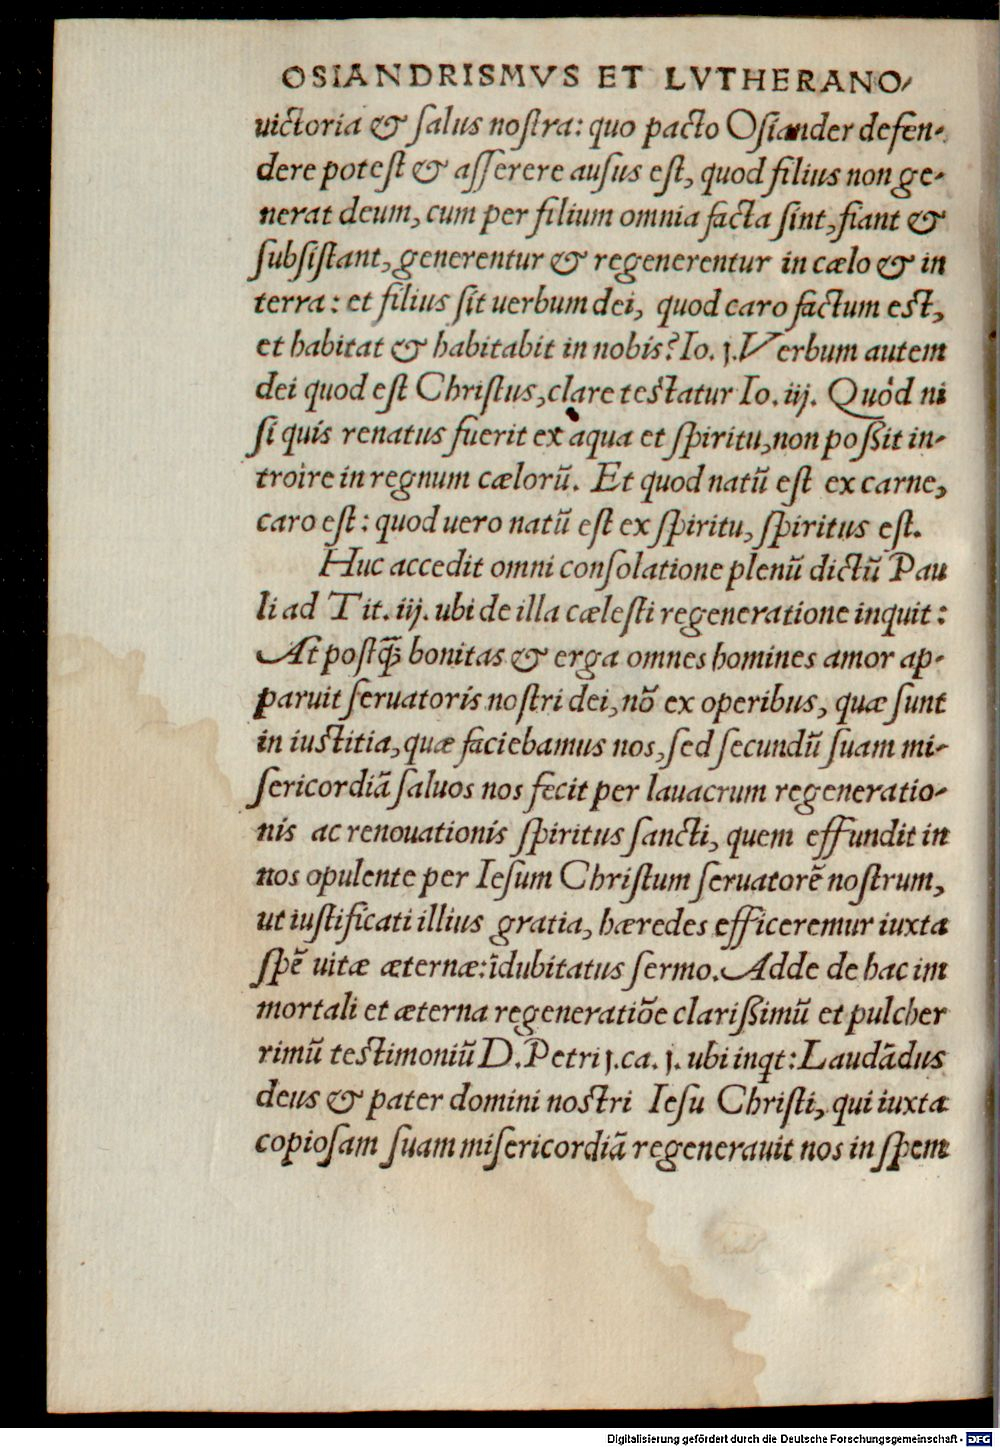 OSIANDRISMVS ET LVTHERANO-
uictoria & salus nostra: quo pacto Osiander defen-
dere potest & asserere ausus est, quod filius non ge-
nerat deum, cum per filium omnia facta sint, fiant &
subsistant, generentur & regenerentur in cælo & in
terra: et filius sit uerbum dei, quod caro factum est,
et habitat & habitabit in nobis? Io. j. Verbum autem
dei quod est Christus, clare testatur Io. iij. Quòd ni
si quis renatus fuerit ex aqua et spiritu, non poßit in-
troire in regnum cælorũ. Et quod natũ est ex carne,
caro est: quod uero natũ est ex spiritu, spiritus est.
Huc accedit omni consolatione plenũ dictũ Pau
li ad Tit. iij. ubi de illa cælesti regeneratione inquit:
At postq̃ bonitas & erga omnes homines amor ap-
paruit seruatoris nostri dei, nõ ex operibus, quæ sunt
in iustitia, quæ faciebamus nos, sed secundũ suam mi-
sericordiã saluos nos fecit per lauacrum regeneratio-
nis ac renouationis spiritus sancti, quem effundit in
nos opulente per Iesum Christum seruatorẽ nostrum,
ut iustificati illius gratia, hæredes efficeremur iuxta
spẽ uitæ æternæ: ĩdubitatus sermo. Adde de hac im
mortali et æterna regeneratiõe clarißimũ et pulcher
rimũ testimoniũ D. Petri j. ca. j. ubi inqt: Laudãdus
deus & pater domini nostri Iesu Christi, qui iuxta
copiosam suam misericordiã regenerauit nos in spem
Digitalisierung gefördert durch die Deutsche Forschungsgemeinschaft - DFG